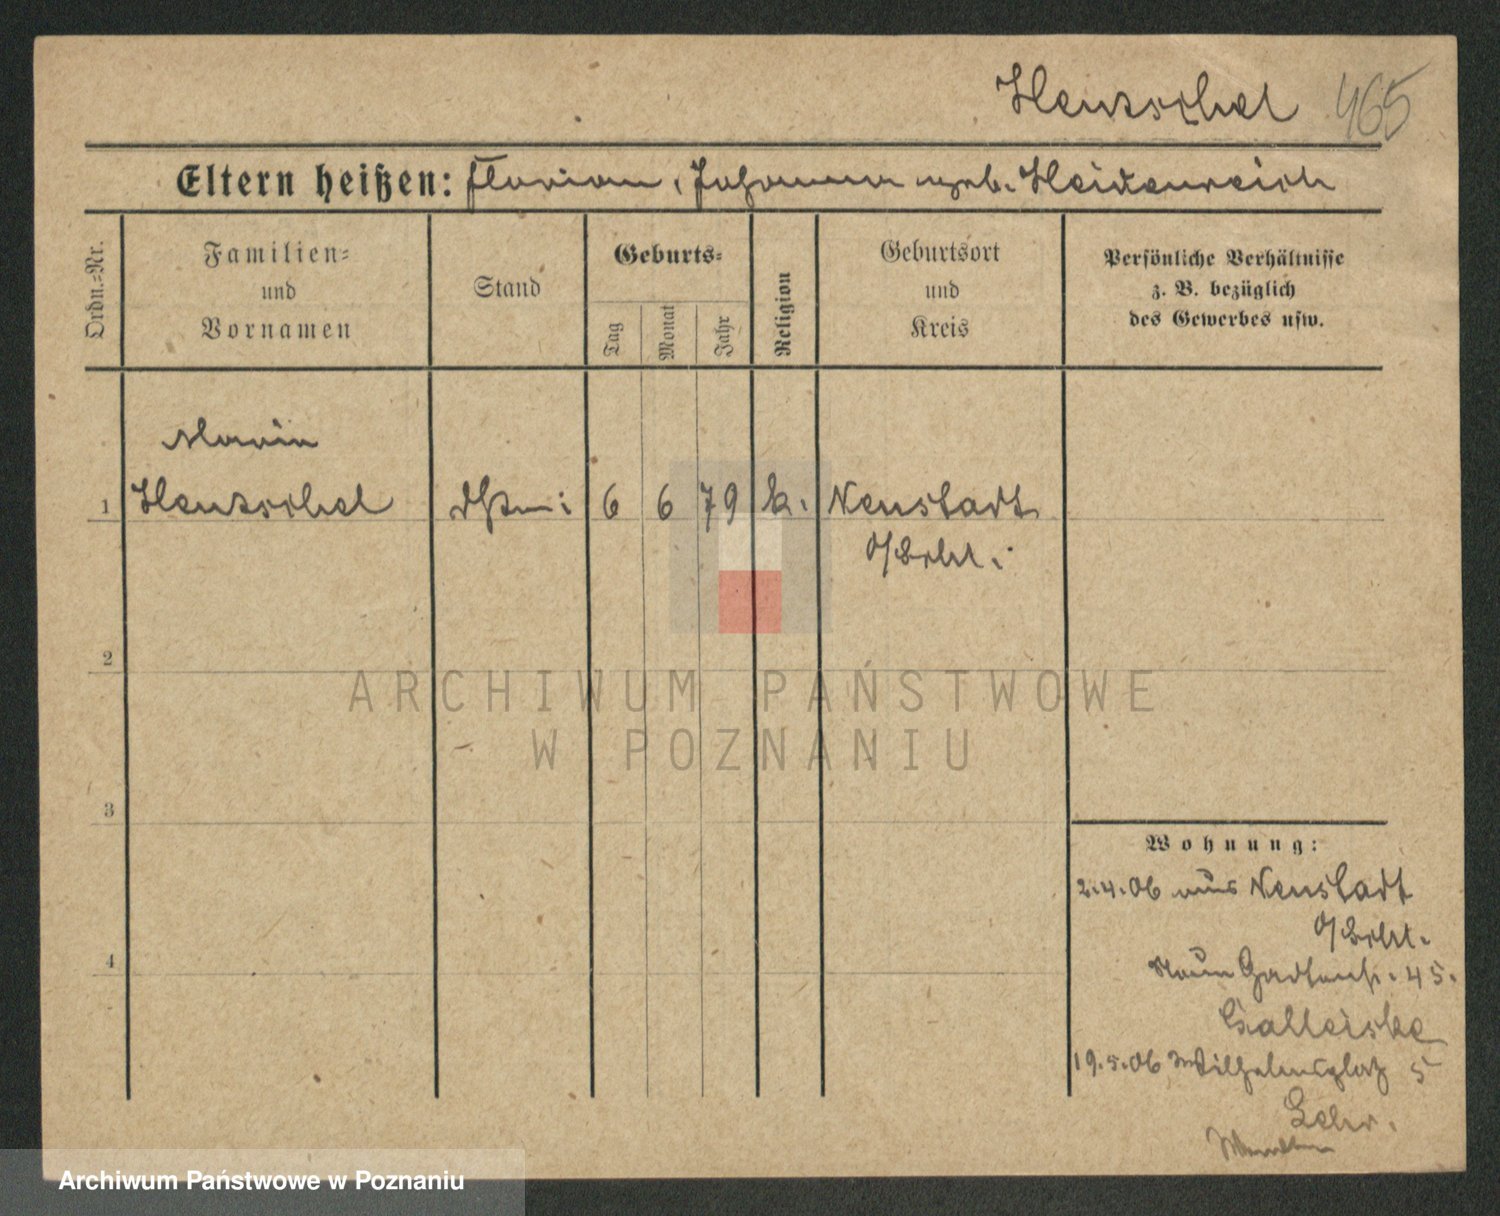 Hentschel 465
Eltern heißen: Florian, Johanna geb. Heidenreich
Ordn.=Nr.
Familien=
und
Vornamen
Stand
Geburts=
Tag
Monat
Jahr
Religion
Geburtsort
und
Kreis
Persönliche Verhältnisse
z. B. bezüglich
des Gewerbes usw.
Maria
1 Hentschel 6 6 79 k. Neustadt
O/Schl.
2
3
4
Wohnung:
2.4.06 aus Neustadt
O/Schl.
45.
19.5.06 Wilhelmsplatz 5
ARCHIWUM PAŃSTWOWE
W POZNANIU
Archiwum Państwowe w Poznaniu